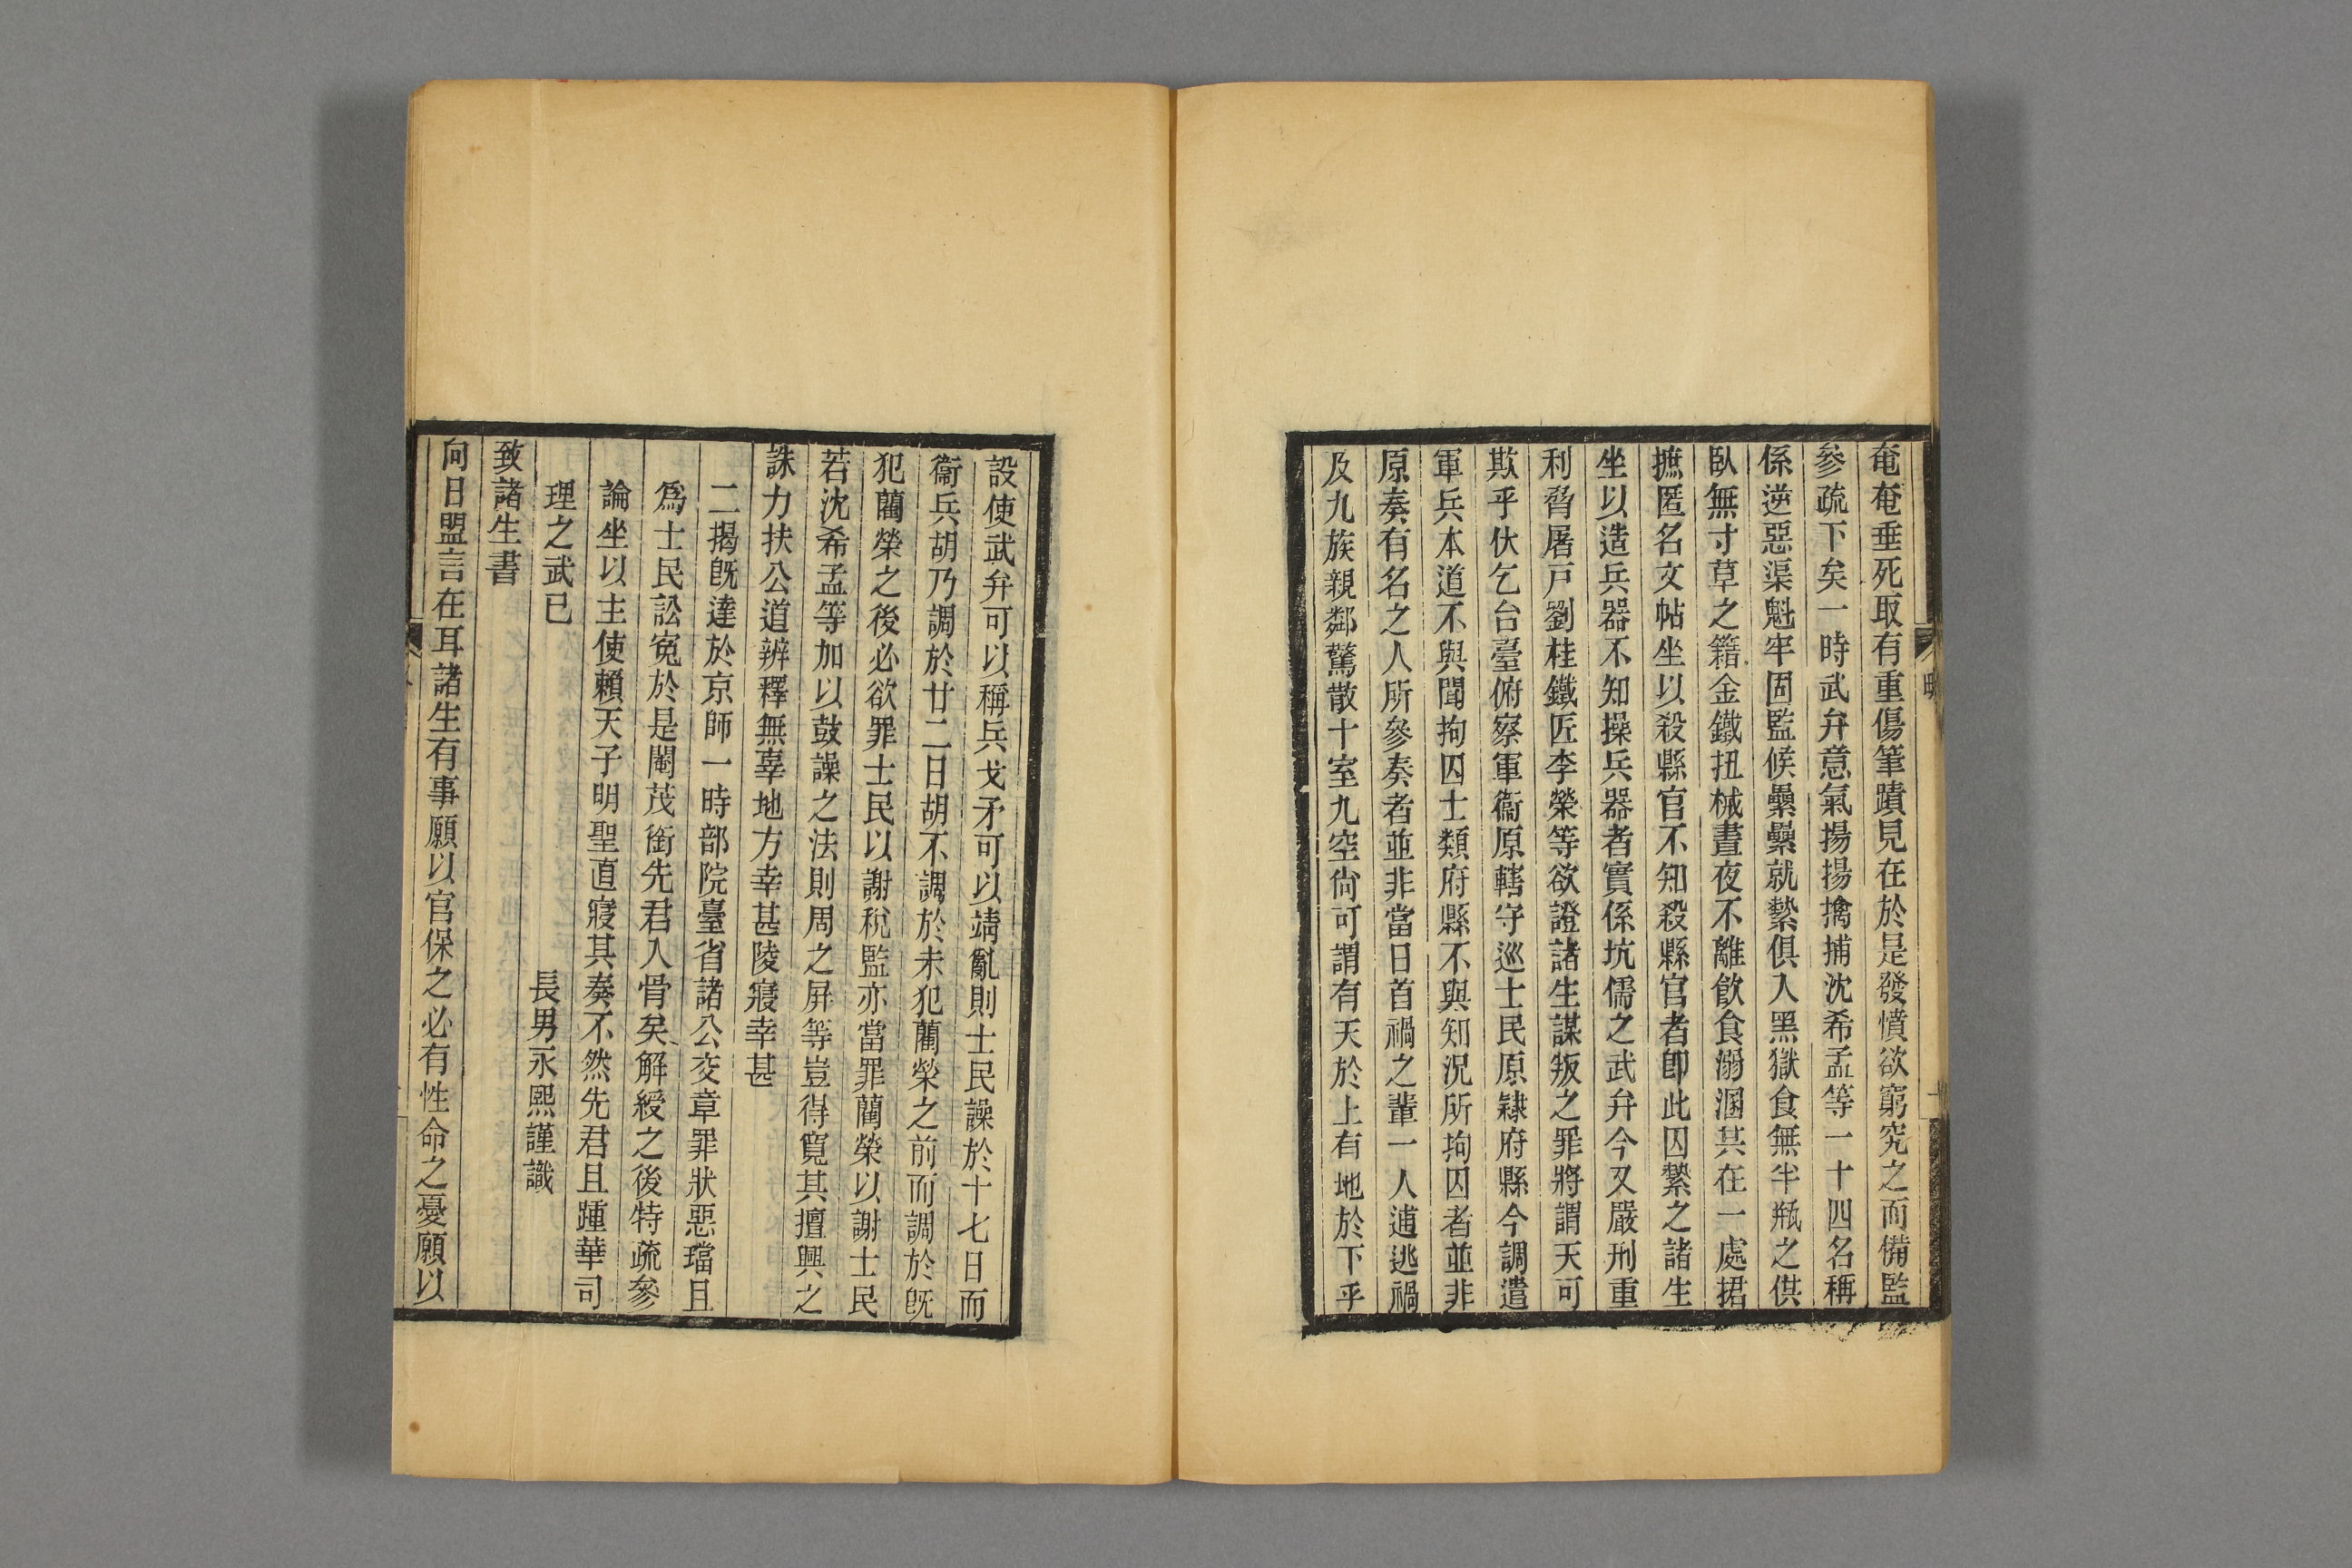 奄奄垂死取有重傷筆蹟見在於是發憤欲窮究之而備監
參疏下矣一時武弁意氣揚揚擒捕沈希孟等一十四名稱
係逆惡渠魁牢固監候纍纍就縶俱入黑獄食無半瓶之供
臥無寸草之籍金鐵扭械晝夜不離飲食溺溷共在一處捃
摭匿名文帖坐以殺縣官不知殺縣官者卽此囚縶之諸生
坐以造兵器不知操兵器者實係坑儒之武弁今又嚴刑重
利脅屠戸劉桂鐵匠李榮等欲證諸生謀叛之罪將謂天可
欺乎伏乞台臺俯察軍衞原轄守巡士民原隷府縣今調遣
軍兵本道不與聞拘囚士類府縣不與知況所拘囚者並非
原奏有名之人所參奏者並非當日首禍之輩一人逋逃禍
及九族親鄰驚散十室九空尙可謂有天於上有地於下乎
設使武弁可以稱兵戈矛可以靖亂則士民譟於十七日而
衞兵胡乃調於廿二日胡不調於未犯藺榮之前而調於旣
犯藺榮之後必欲罪士民以謝稅監亦當罪藺榮以謝士民
若沈希孟等加以鼓譟之法則周之屏等豈得寬其擅興之
誅力扶公道辨釋無辜地方幸甚陵寢幸甚
二揭旣達於京師一時部院臺省諸公交章罪狀惡璫且
爲士民訟寃於是閹茂銜先君入骨矣解綬之後特疏參
論坐以主使賴天子明聖直寢其奏不然先君且踵華司
理之武已
長男永熙謹識
致諸生書
向日盟言在耳諸生有事願以官保之必有性命之憂願以